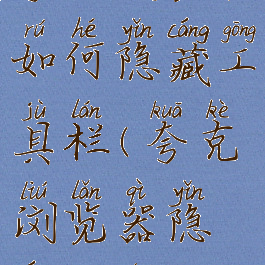 rú hé yǐn cáng gōng
如何隐藏工
jù lán kuā kè
具栏(夸克
liú lǎn qì yǐn
浏览器隐